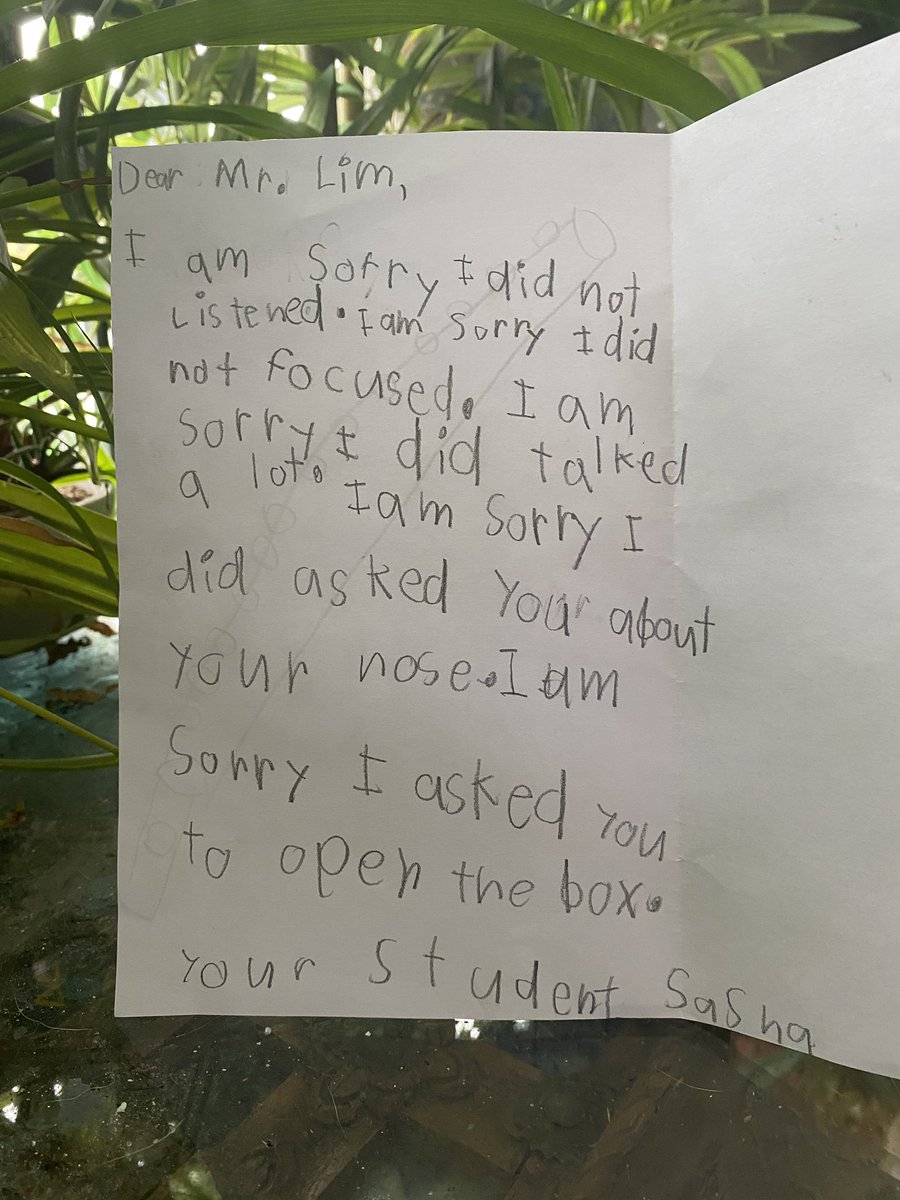 Dear Mr. Lim,
I am Sorry I did not
Listened. I am sorry I did
not focused. I am
sorry I did talked
a lot. I am sorry I
did asked your about
your nose. I am
Sorry I asked you
to open the box.
Your Student Sasha